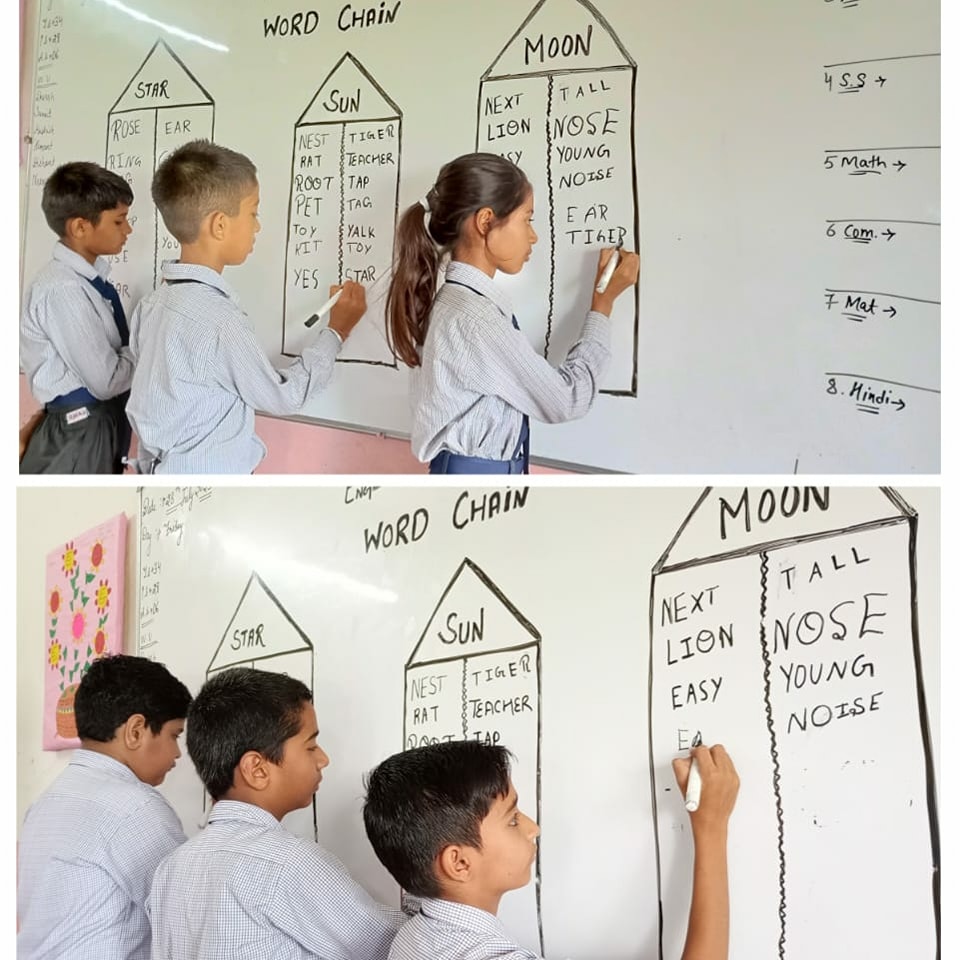 WORD CHAIN
STAR
ROSE EAR
RING
SUN
NEST TIGER
RAT TEACHER
ROOT TAP
PET TAG
TOY YALK
KIT TOY
YES STAR
MOON
NEXT TALL
LION NOSE
YOUNG
NOISE
EAR
TIGER
4 S.S →
5 Math →
6 Com. →
7 Mat →
8. Hindi →
Day :- Friday
WORD CHAIN
STAR
SUN
NEST TIGER
RAT TEACHER
ROOT TAP
MOON
NEXT TALL
LION NOSE
EASY YOUNG
NOISE
EA